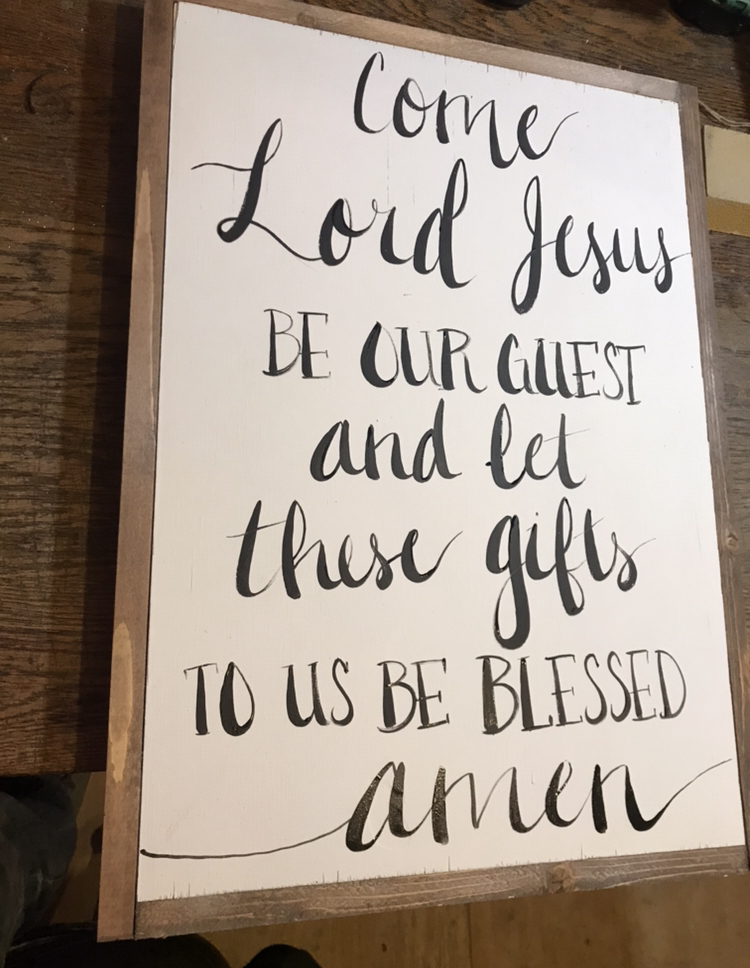 Come
Lord Jesus
BE OUR GUEST
and let
these gifts
TO US BE BLESSED
amen